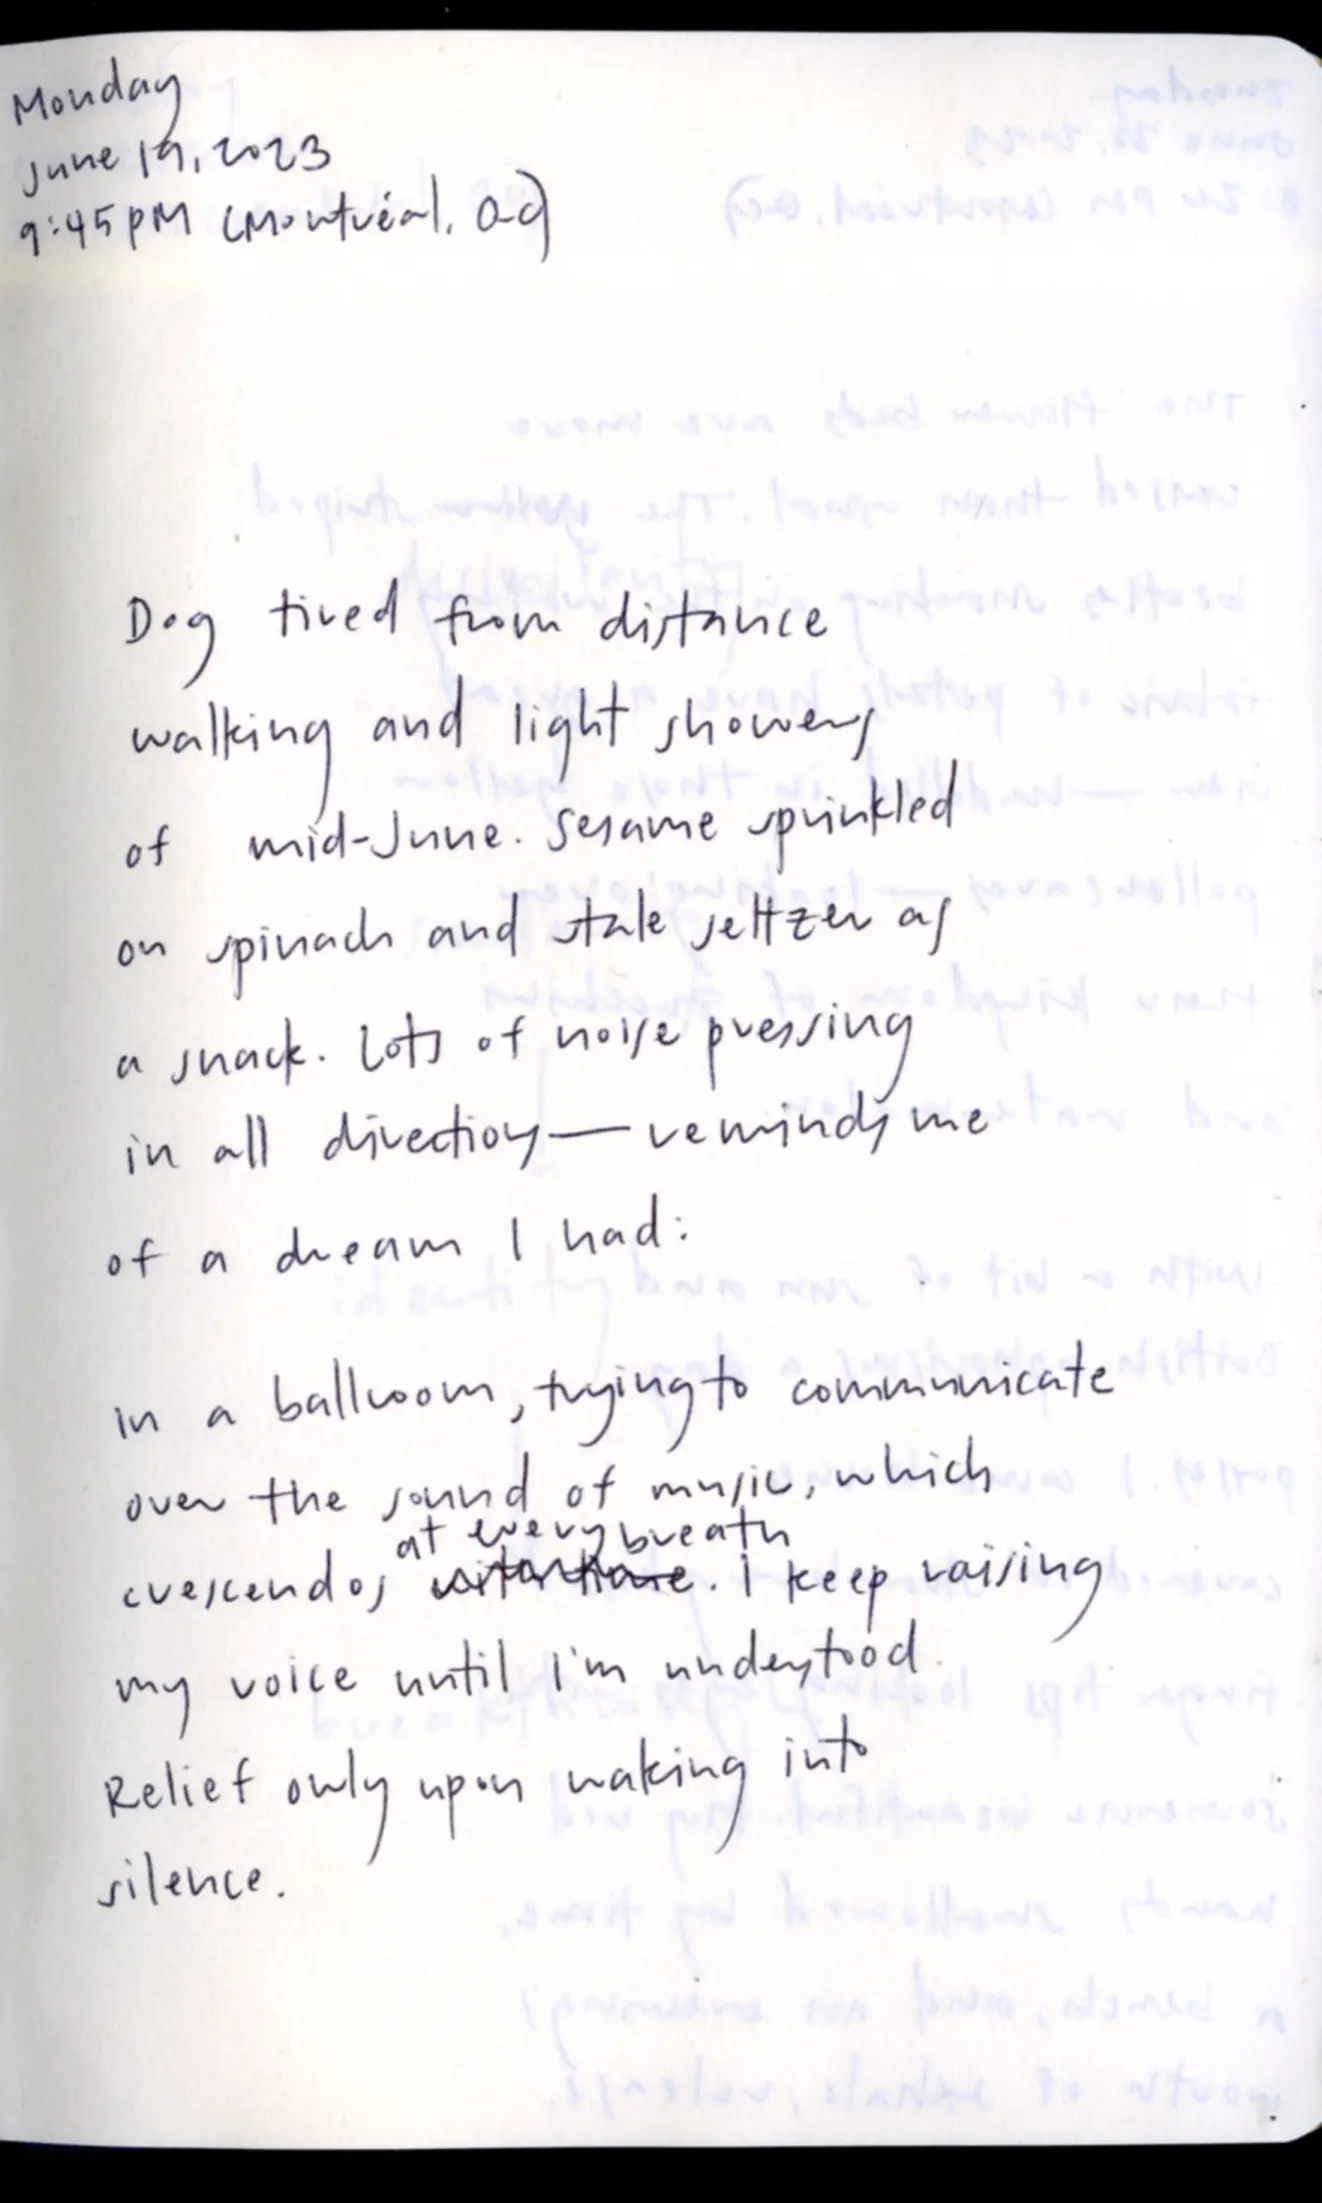 Monday
June 19, 2023
9:45PM (Montréal, QC)
Dog tired from distance
walking and light showers
of mid-June. Sesame sprinkled
on spinach and stale seltzer as
a snack. Lots of noise pressing
in all directions — reminds me
of a dream I had:
in a ballroom, trying to communicate
over the sound of music, which
at every breath
crescendos . I keep raising
my voice until I'm understood.
Relief only upon waking into
silence.